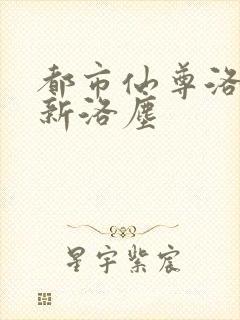 都市仙尊洛
新洛尘
星宇紫宸